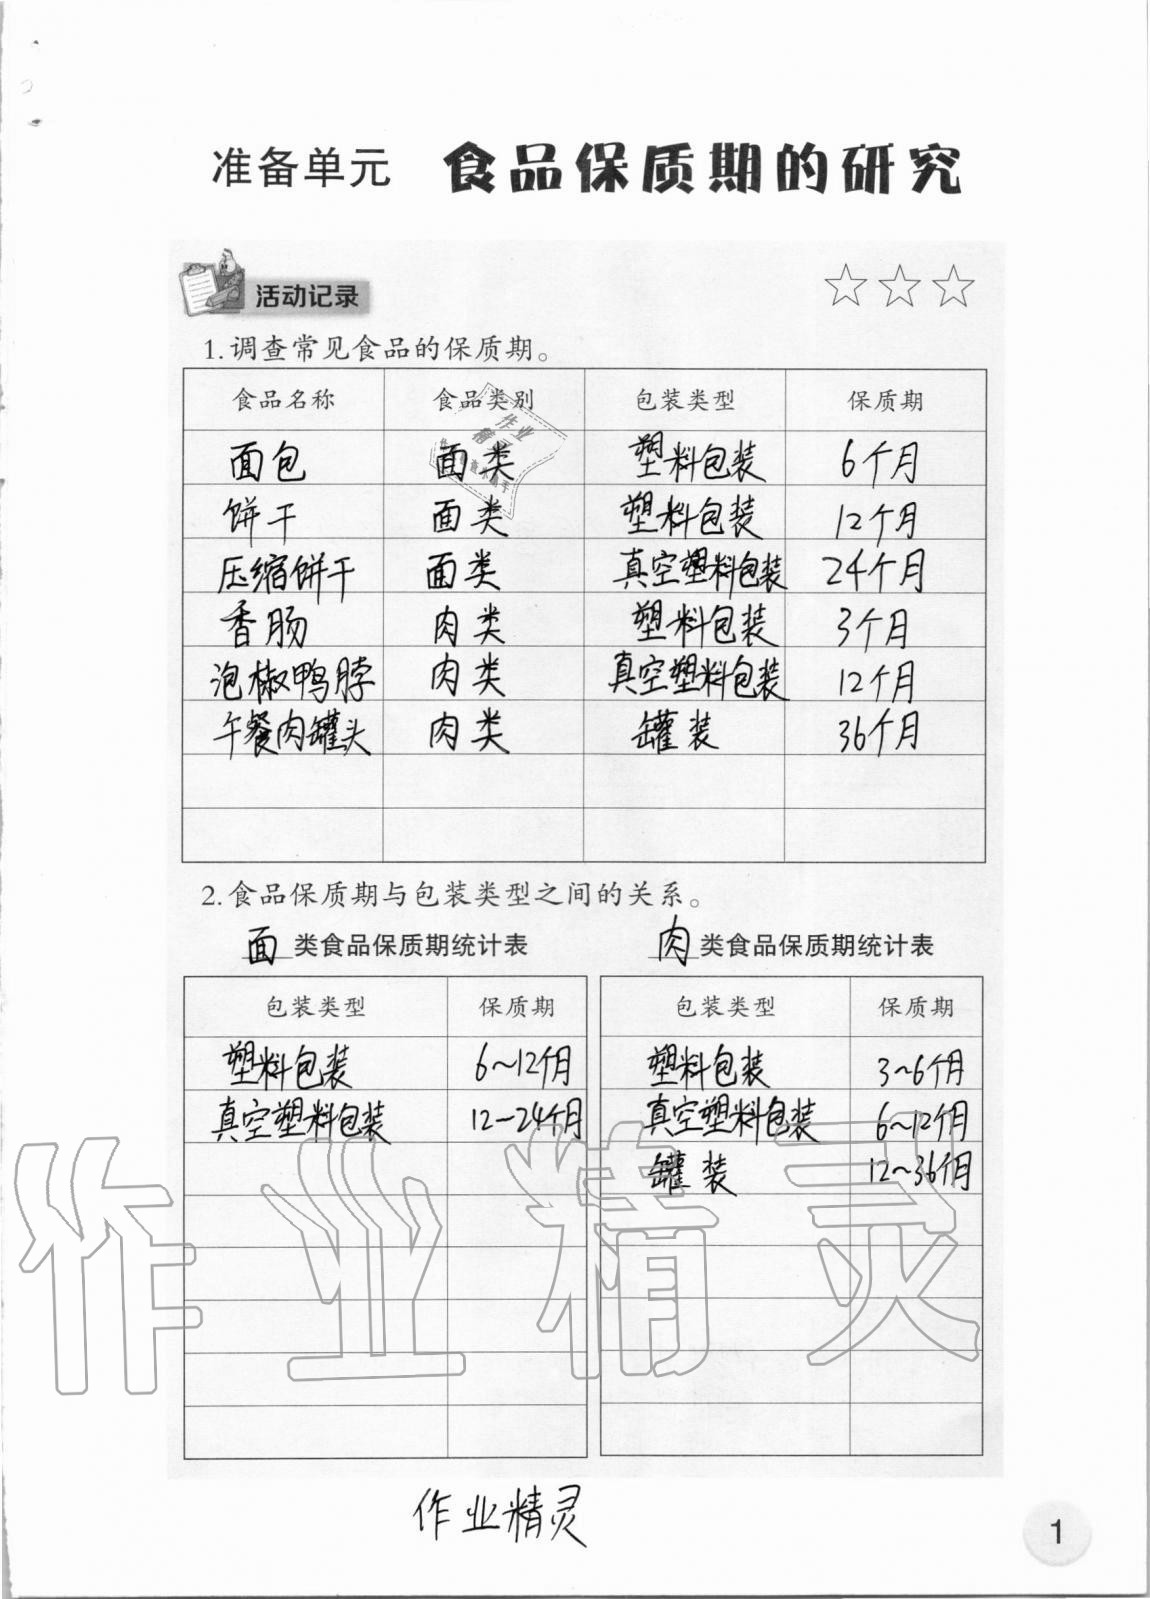 准备单元 食品保质期的研究
活动记录
1.调查常见食品的保质期。
食品名称 食品类别 包装类型 保质期
面包 面类 塑料包装 6个月
饼干 面类 塑料包装 12个月
压缩饼干 面类 真空塑料包装 24个月
香肠 肉类 塑料包装 3个月
泡椒鸭脖 肉类 真空塑料包装 12个月
午餐肉罐头 肉类 罐装 36个月
作业
精灵
2.食品保质期与包装类型之间的关系。
面类食品保质期统计表
包装类型 保质期
塑料包装 6~12个月
真空塑料包装 12—24个月
肉类食品保质期统计表
包装类型 保质期
塑料包装 3~6个月
真空塑料包装 6~12个月
罐装 12~36个月
作业精灵
作业精灵
1